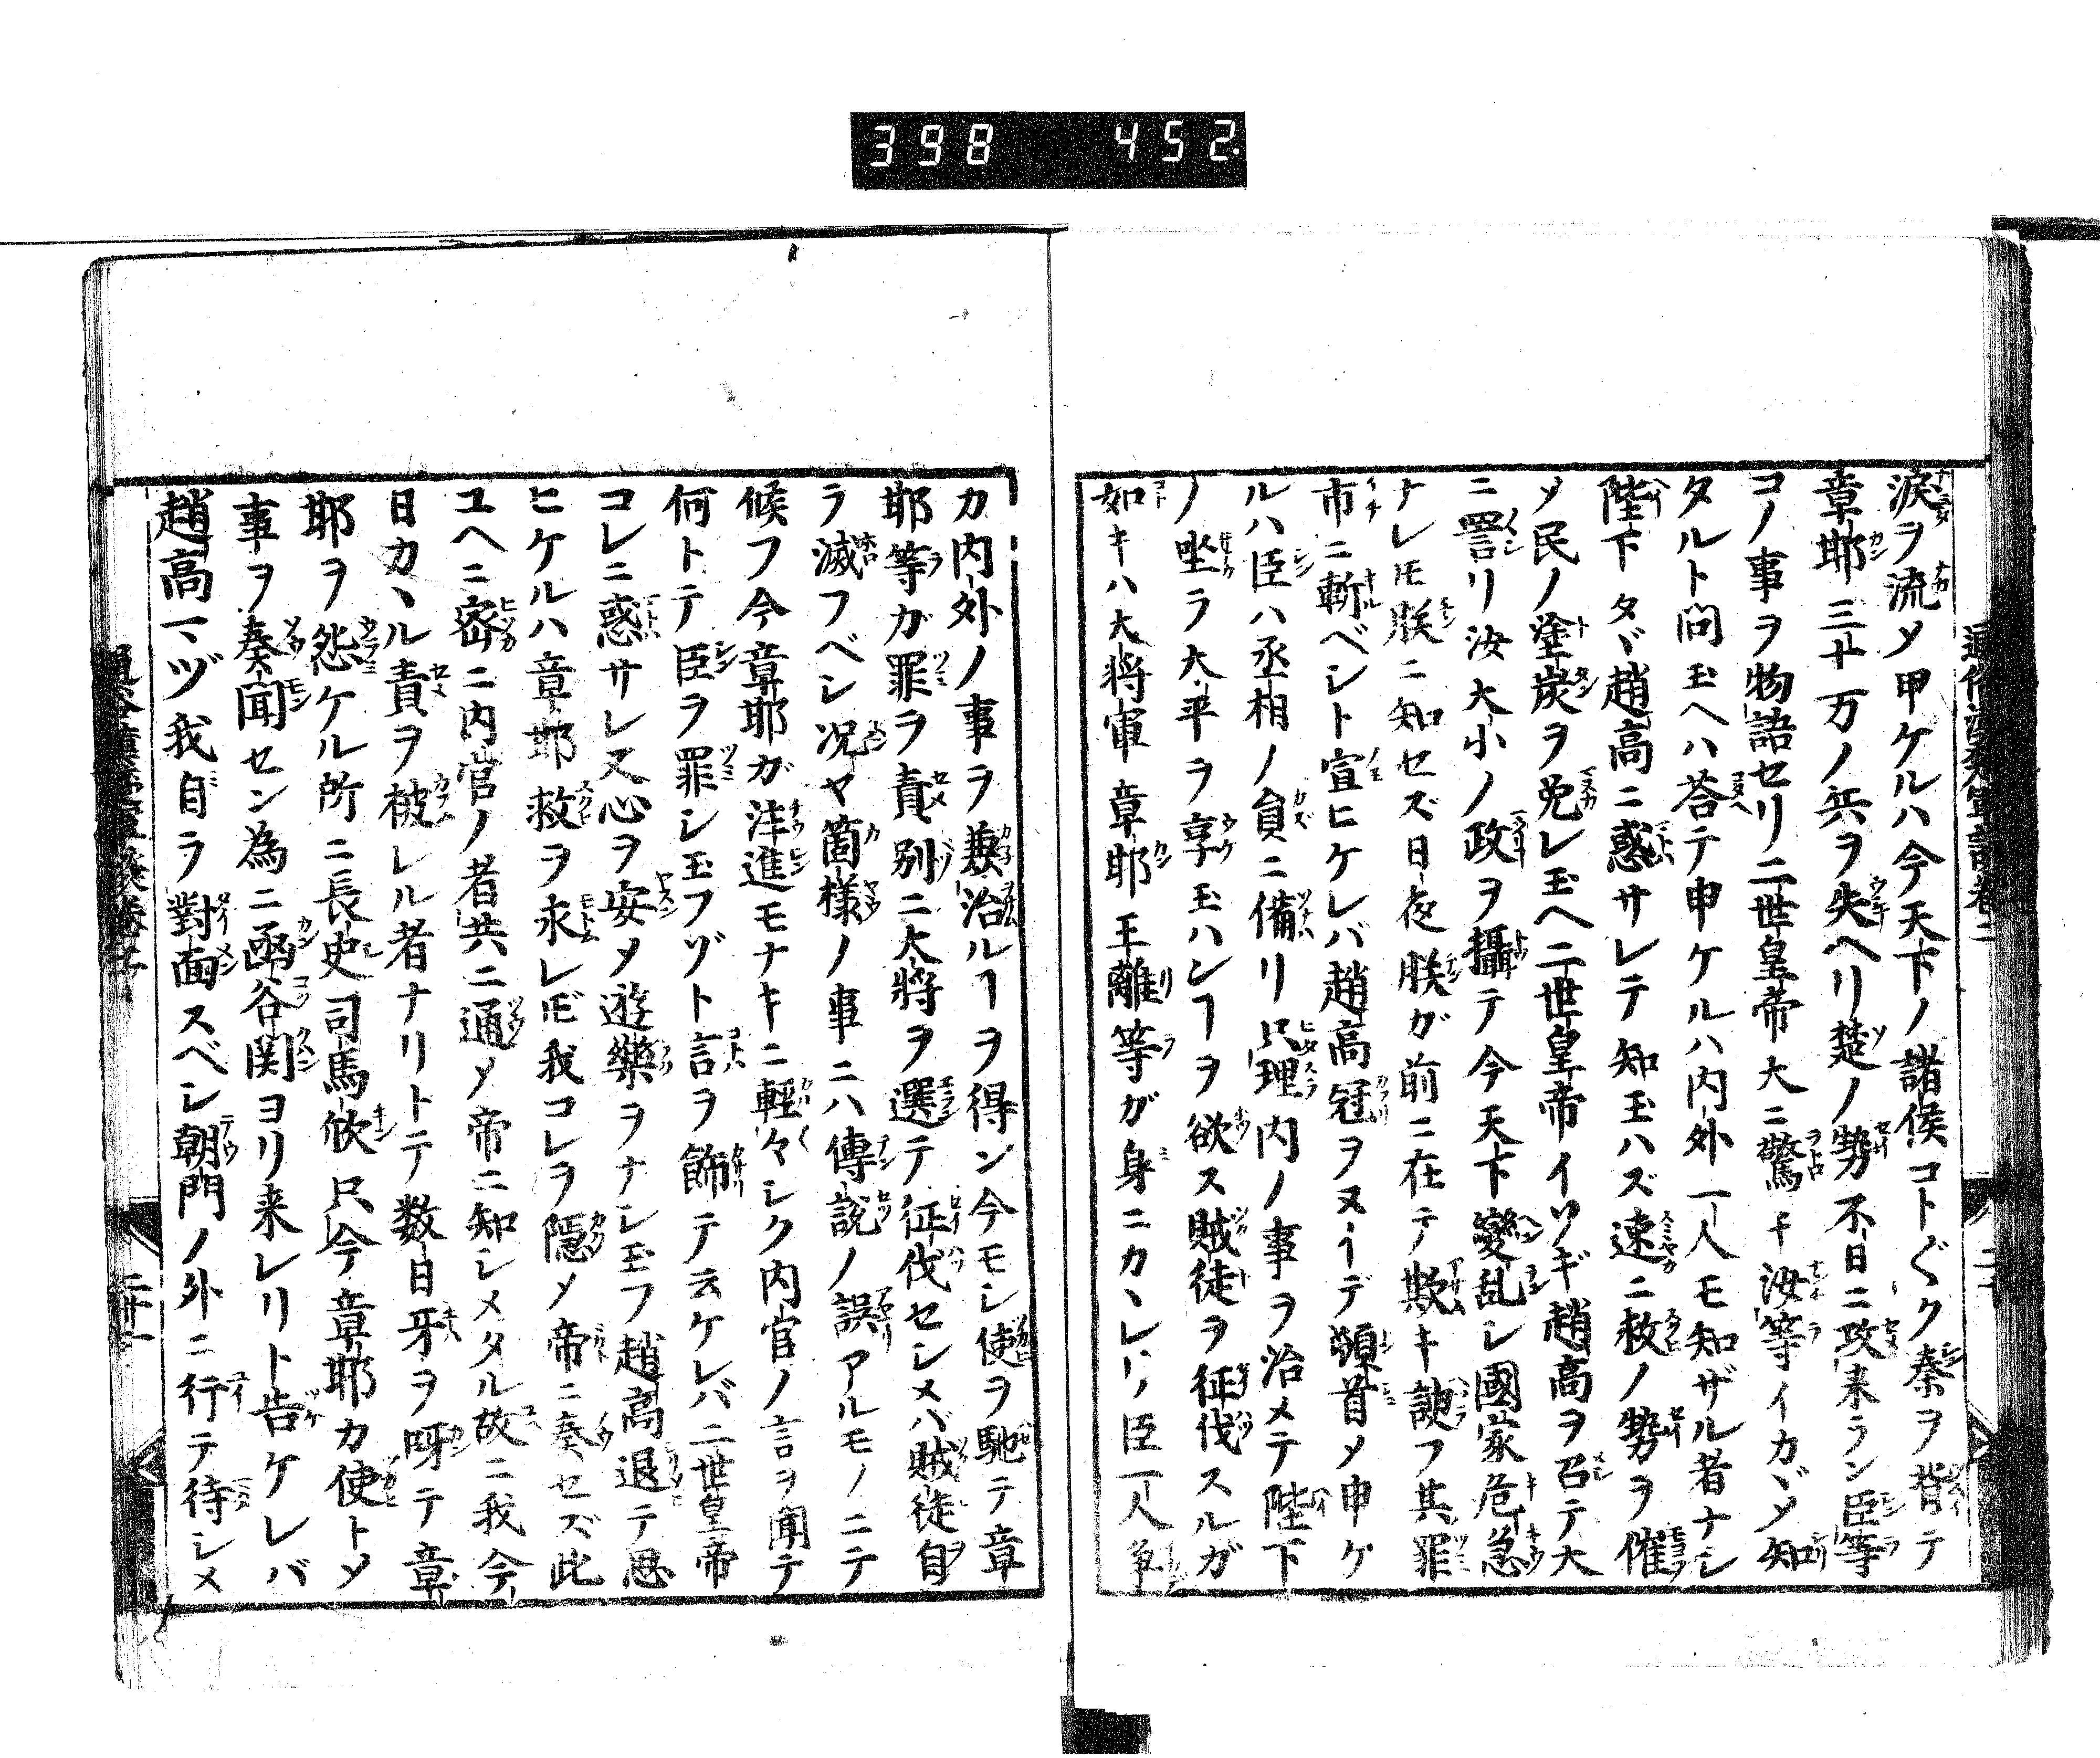 398 452
涙ヲ流〆甲ケルハ今天下ノ諸侯コト〴〵ク秦ヲ背テ
章邯三十万ノ兵ヲ失ヘリ楚ノ勢不日ニ攻来ラン臣等
コノ事ヲ物語セリ二世皇帝大ニ驚キ汝等イカヾ〆知
タルト問玉ヘハ荅テ申ケルハ内外一人モ知ザル者ナシ
陛下タヾ趙高ニ惑サレテ知玉ハズ速ニ救ノ勢ヲ催
〆民ノ塗炭ヲ免レ玉ヘ二世皇帝イソギ趙高ヲ召テ大
ニ詈リ汝大小ノ政ヲ攝テ今天下變乱シ國家危急
ナレ𪜈朕ニ知セズ日夜朕ガ前ニ在テ欺キ諛フ其罪
市ニ斬ベシト宣ヒケレバ趙高冠ヲヌイデ頓首〆申ケ
ルハ臣ハ丞相ノ負ニ備リ只理内ノ事ヲ治メテ陛下
ノ坐ラ大平ラ享玉ハンヿヲ欲ス賊徒ヲ征伐スルガ
如キハ大将軍章邯王離等ガ身ニカヽレリ臣一人争
カ内外ノ事ヲ兼治ルヿヲ得ン今モシ使ヲ馳テ章
邯等ガ罪ヲ責別ニ大将ヲ選テ征伐セシメバ賊徒自
ラ滅フベシ况ヤ箇様ノ事ニハ傳説ノ誤アルモノニテ
候フ今章邯ガ注進モナキニ軽々シク内官ノ言ヲ聞テ
何トテ臣ヲ罪シ玉フゾト言ヲ飾テ云ケレバ二世皇帝
コレニ惑サレ又心ヲ安〆遊樂ヲナシ玉フ趙高退テ思
ヒケルハ章邯救ヲ求レ𪜈我コレヲ隠〆帝ニ奏セズ此
ユヘニ密ニ内官ノ者共ニ通〆帝ニ知シメタル故ニ我今
日カヽル責ヲ被レル者ナリトテ数日牙ヲ呀テ章
邯ヲ怨ケル所ニ長史司馬欣只今章邯カ使ト〆
事ヲ奏聞セン為ニ函谷関ヨリ来レリト告ケレバ
趙高マヅ我自ラ對面スベシ朝門ノ外ニ行テ待シメ
二十一